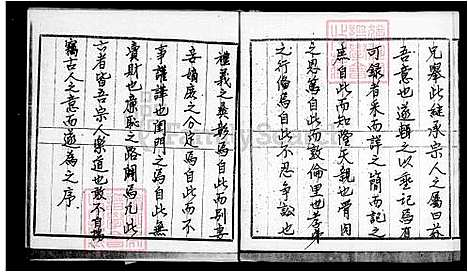 兄舉此繼承宗人之屬曰茲
吾意也遂輯之以垂記焉有
可錄者采而詳之簡而記之
庶自此而知隆天親也骨肉
之恩篤自此而敦倫里也孝弟
之行脩焉自此不忍爭訟也
禮義之彝彰焉自此而別妻
妾嫡庶之分定焉自此而不
事謹譁也閨門之焉自此無
瀆財也廉恥之路開焉凡此
言者皆吾宗人樂道也敢不自揚
竊古人之意而遂為之序